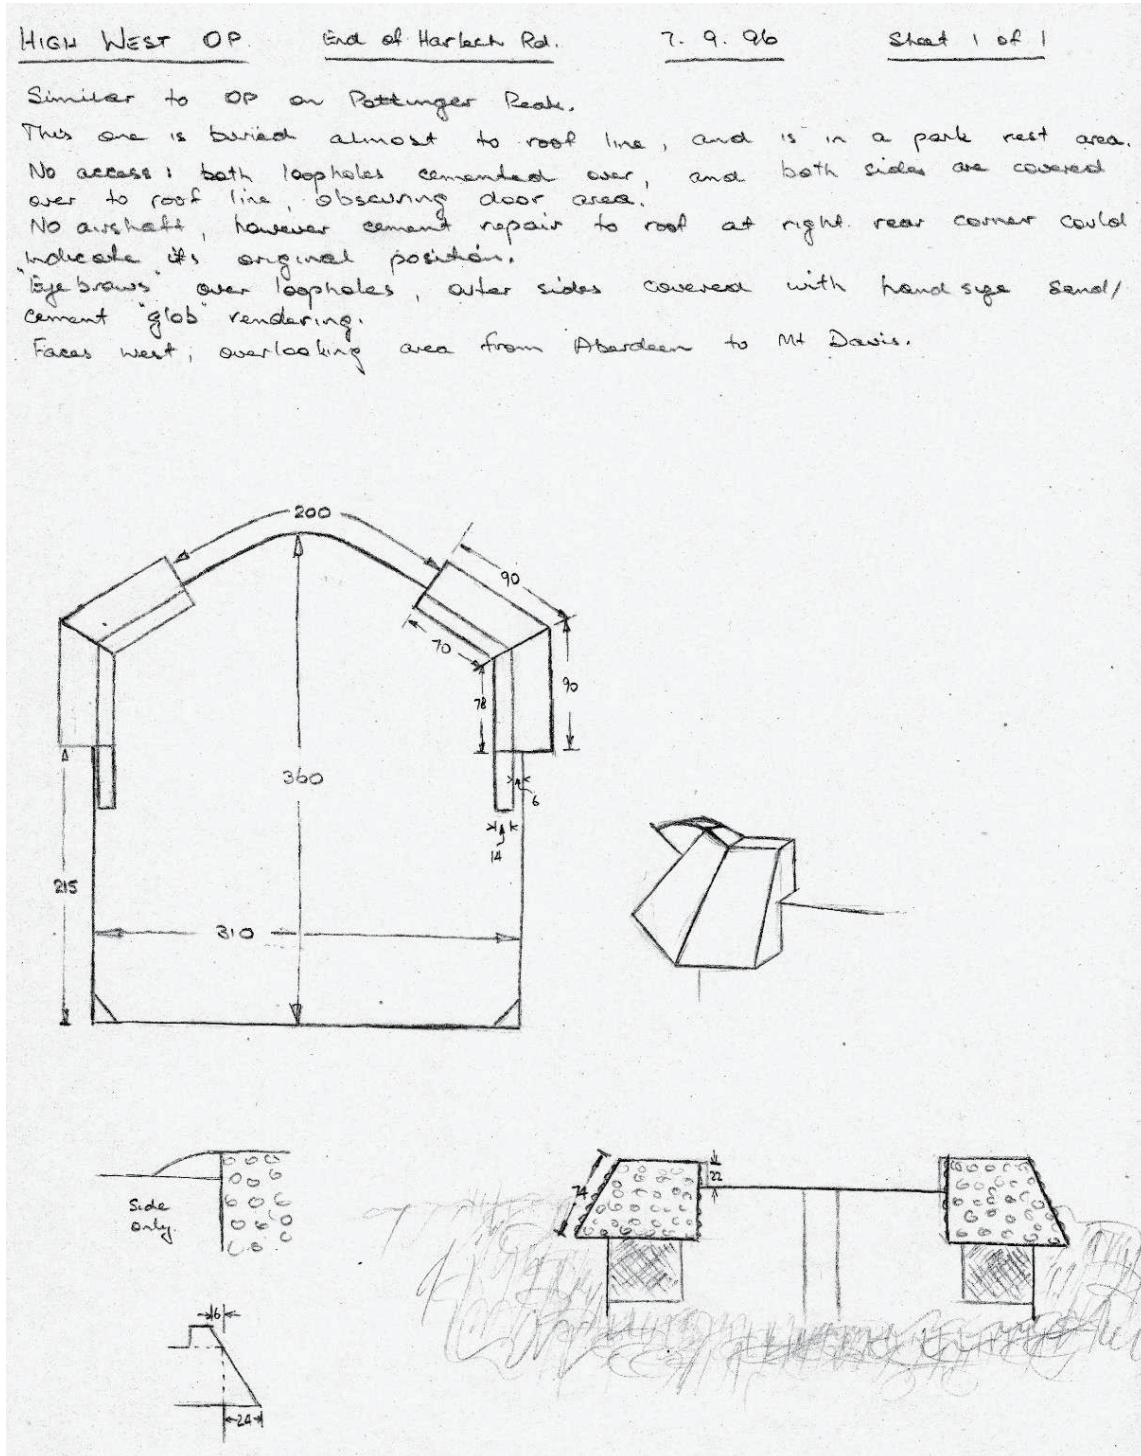 HIGH WEST OP. End of Harlech Rd. 7. 9. 96 Sheet 1 of 1
Similar to OP on Pottinger Peak.
This one is buried almost to roof line, and is in a park rest area.
No access; both loopholes cemented over, and both sides are covered
over to roof line, obscuring door area.
No airshaft, however cement repair to roof at right rear corner could
indicate its original position.
"Eyebrows" over loopholes, outer sides covered with hand size sand/
cement "glob" rendering.
Faces west, overlooking area from Aberdeen to Mt Davis.
200
90
70
90
78
360
6
14
215
310
Side
only.
74
22
6
24